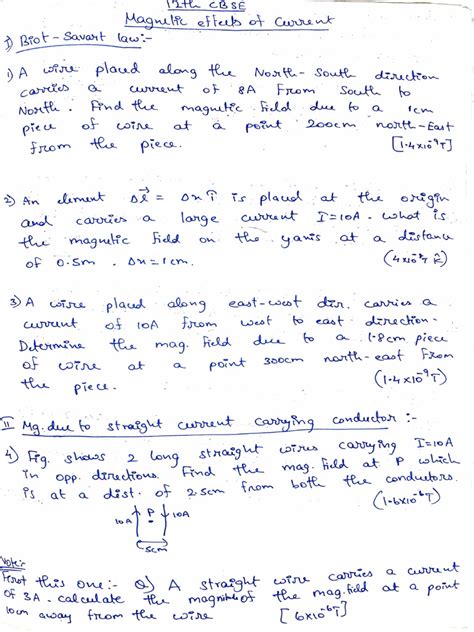 12th CBSE
Magnetic effects of Current
I) Biot-Savart law:-
1) A wire placed along the North-South direction
carries a current of 8A From South to
North. Find the magnetic field due to a 1cm
piece of wire at a point 200cm north-East
from the piece. [1.4x10⁻⁹T]
2) An element Δl⃗ = Δx î is placed at the origin
and carries a large current I=10A. what is
the magnetic field on the yaxis at a distance
of 0.5m. Δx=1cm. (4x10⁻⁸T k̂)
3) A wire placed along east-west dir. carries a
current of 10A from west to east direction.
Determine the mag. field due to a 1.8cm piece
of wire at a point 300cm north-east from
the piece. (1.4x10⁻⁹T)
II Mg. due to straight current carrying conductor :-
4) Fig. shows 2 long straight wires carrying I=10A
in opp. directions. Find the mag. field at P which
is at a dist. of 2.5cm from both the conductors.
(1.6x10⁻⁶T)
10A P 10A
5cm
Note:-
First this one:- Q) A straight wire carries a current
of 3A. calculate the magnitude of the mag. field at a point
10cm away from the wire [6x10⁻⁶T]